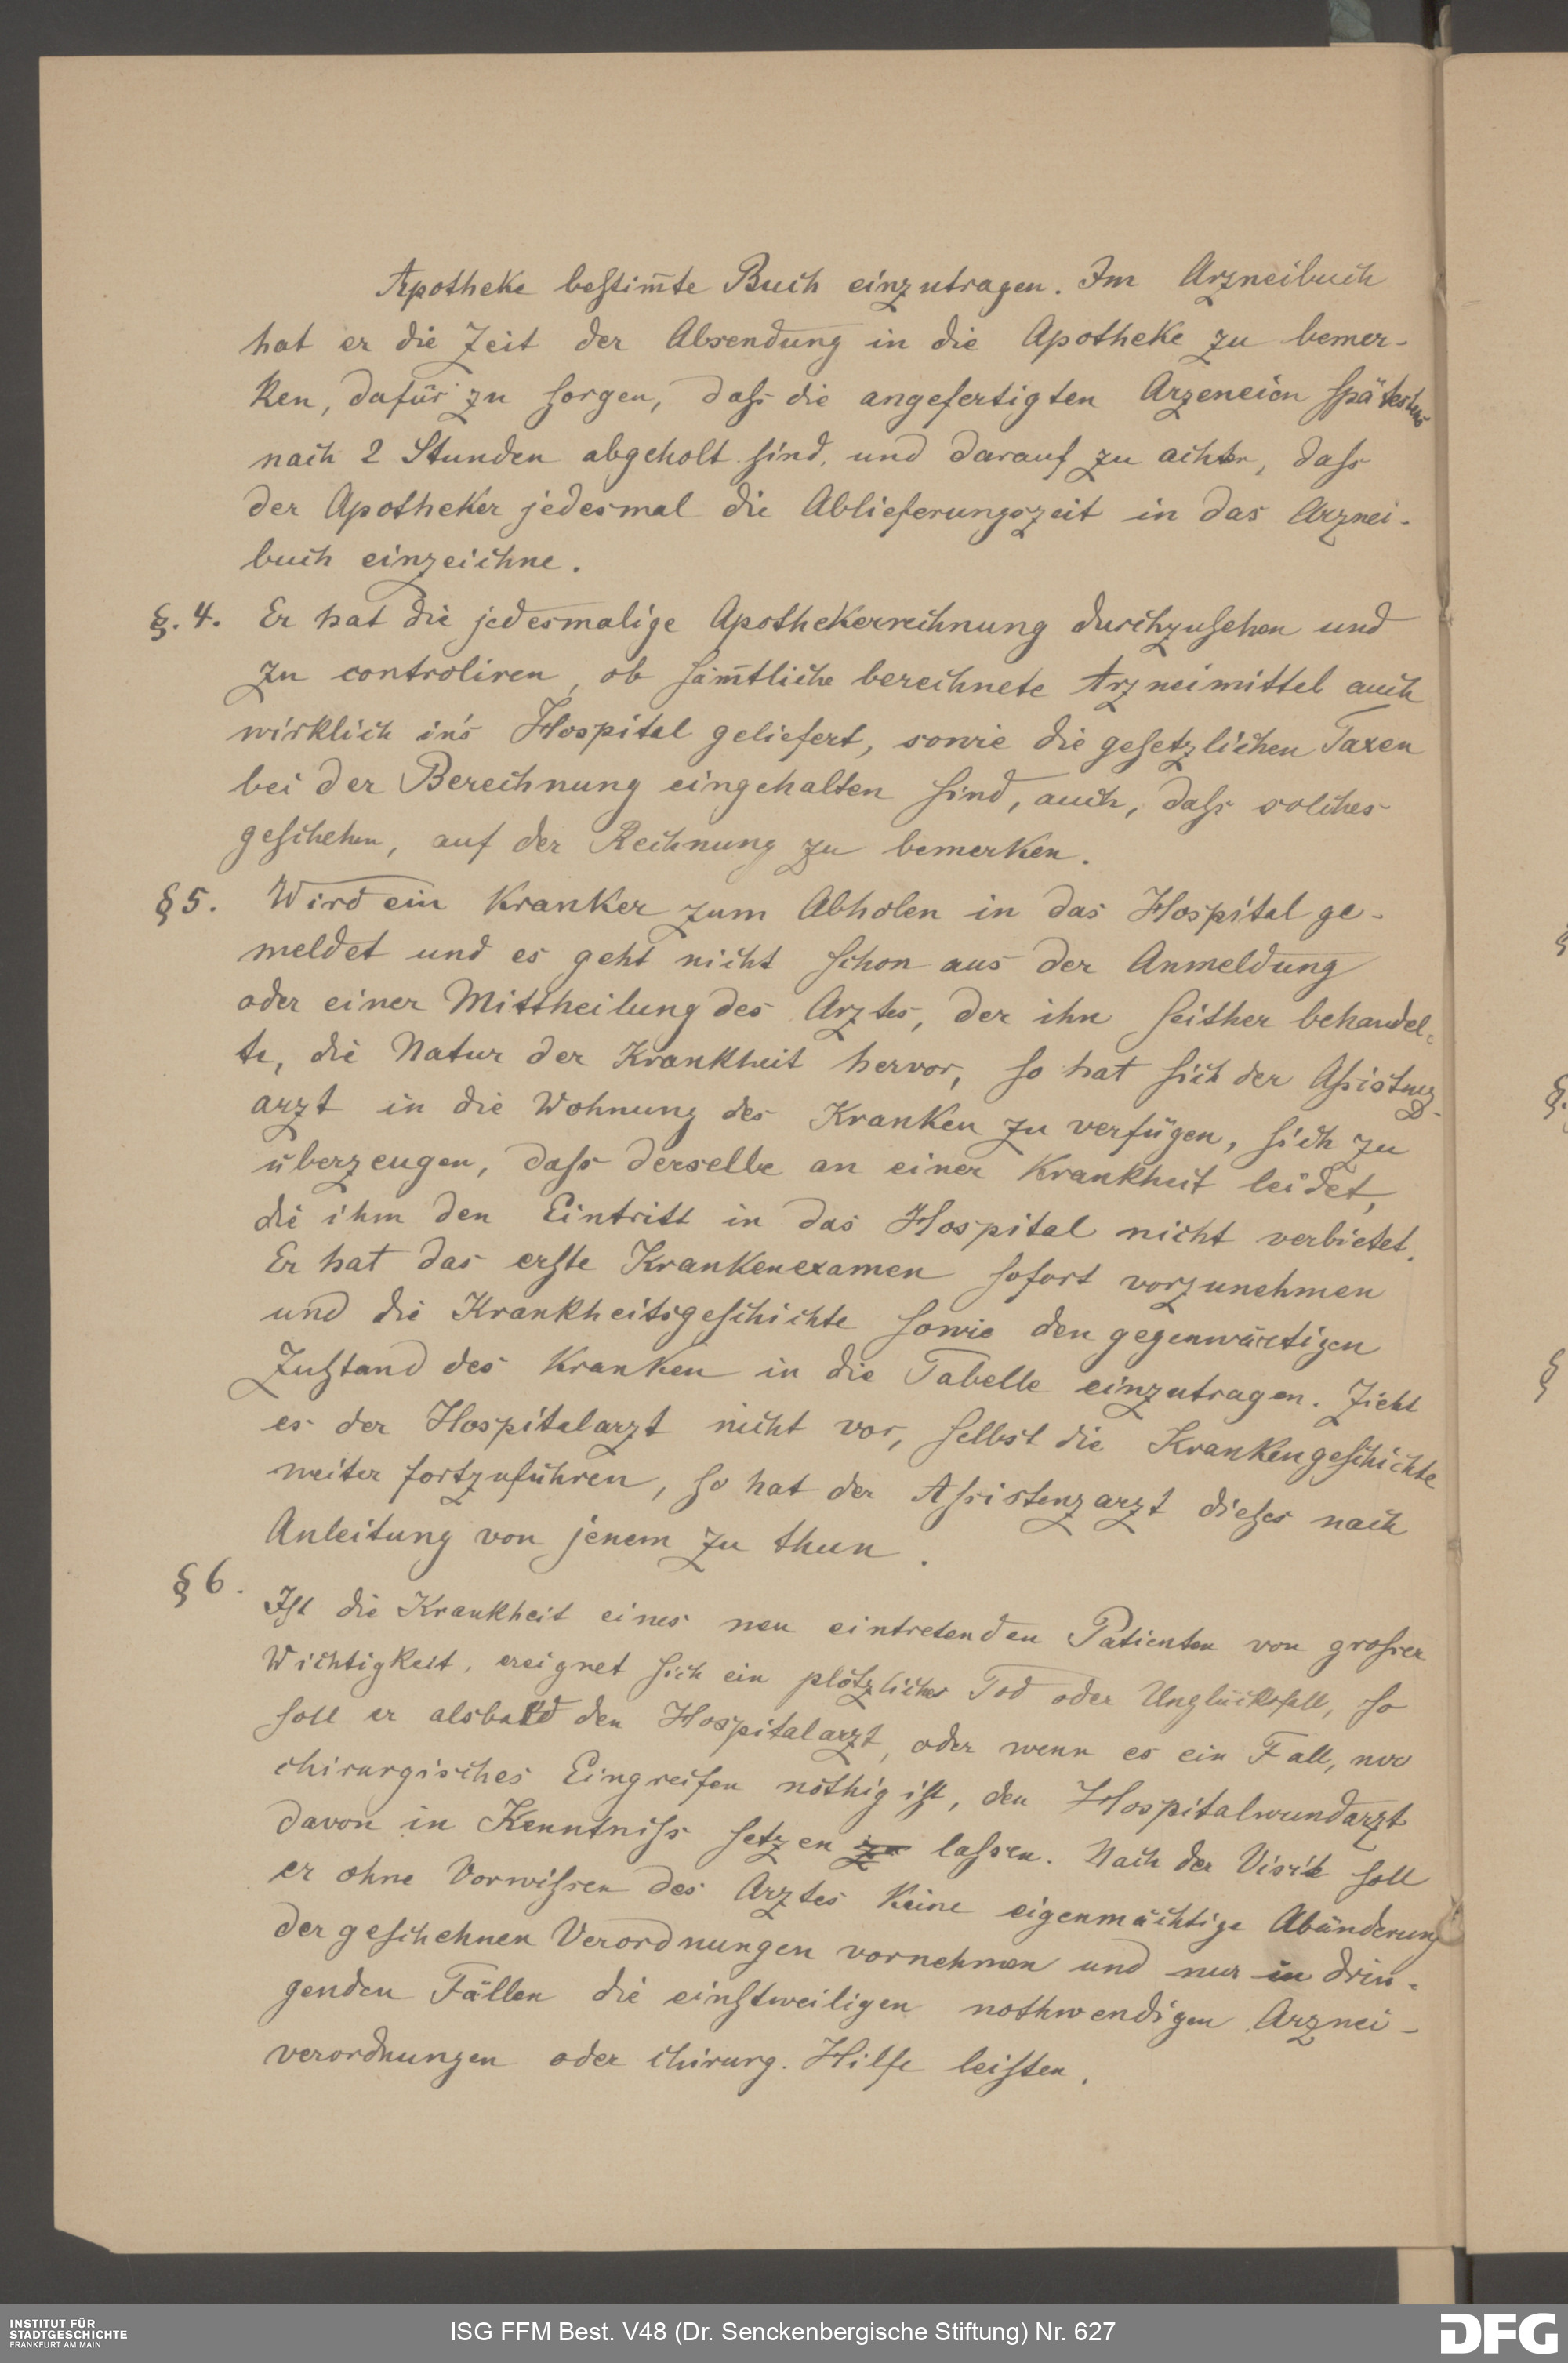 Apotheke bestim̅te Buch einzutragen. Im Arzneibuch
hat er die Zeit der Absendung in die Apotheke zu bemer-
ken, dafür zu sorgen, daſs die angefertigten Arzeneien spätestens
nach 2 Stunden abgeholt sind, und darauf zu achten, daſs
der Apotheker jedesmal die Ablieferungszeit in das Arznei-
buch einzeichne.
§. 4. Er hat die jedesmalige Apothekerrechnung durchzusehen und
zu controliren, ob säm̅tliche berechnete Arzneimittel auch
wirklich in's Hospital geliefert, sowie die gesetzlichen Taxen
bei der Berechnung eingehalten sind, auch, daſs solches
geschehen, auf der Rechnung zu bemerken.
§ 5. Wird ein Kranker zum Abholen in das Hospital ge-
meldet und es geht nicht schon aus der Anmeldung
oder einer Mittheilung des Arztes, der ihn seither behandel-
te, die Natur der Krankheit hervor, so hat sich der Aſsistenz-
arzt in die Wohnung des Kranken zu verfügen, sich zu
überzeugen, daſs derselbe an einer Krankheit leidet,
die ihm den Eintritt in das Hospital nicht verbietet.
Er hat das erste Krankenexamen sofort vorzunehmen
und die Krankheitsgeschichte sowie den gegenwärtigen
Zustand des Kranken in die Tabelle einzutragen. Zieht
es der Hospitalarzt nicht vor, selbst die Krankengeschichte
weiter fortzuführen, so hat der Aſsistenzarzt dieses nach
Anleitung von jenem zu thun.
§ 6. Ist die Krankheit eines neu eintretenden Patienten von groſser
Wichtigkeit, ereignet sich ein plötzlicher Tod oder Unglücksfall, so
soll er alsbald den Hospitalarzt, oder wenn es ein Fall, wo
chirurgisches Eingreifen nöthig ist, den Hospitalwundarzt
davon in Kenntniſs setzen zu laſsen. Nach der Visite soll
er ohne Vorwiſsen des Arztes keine eigenmächtige Abänderung
der geschehnen Verordnungen vornehmen und nur in drin-
genden Fällen die einstweiligen nothwendigen Arznei-
verordnungen oder chirurg. Hilfe leisten.
INSTITUT FÜR
STADTGESCHICHTE
FRANKFURT AM MAIN
ISG FFM Best. V48 (Dr. Senckenbergische Stiftung) Nr. 627
DFG